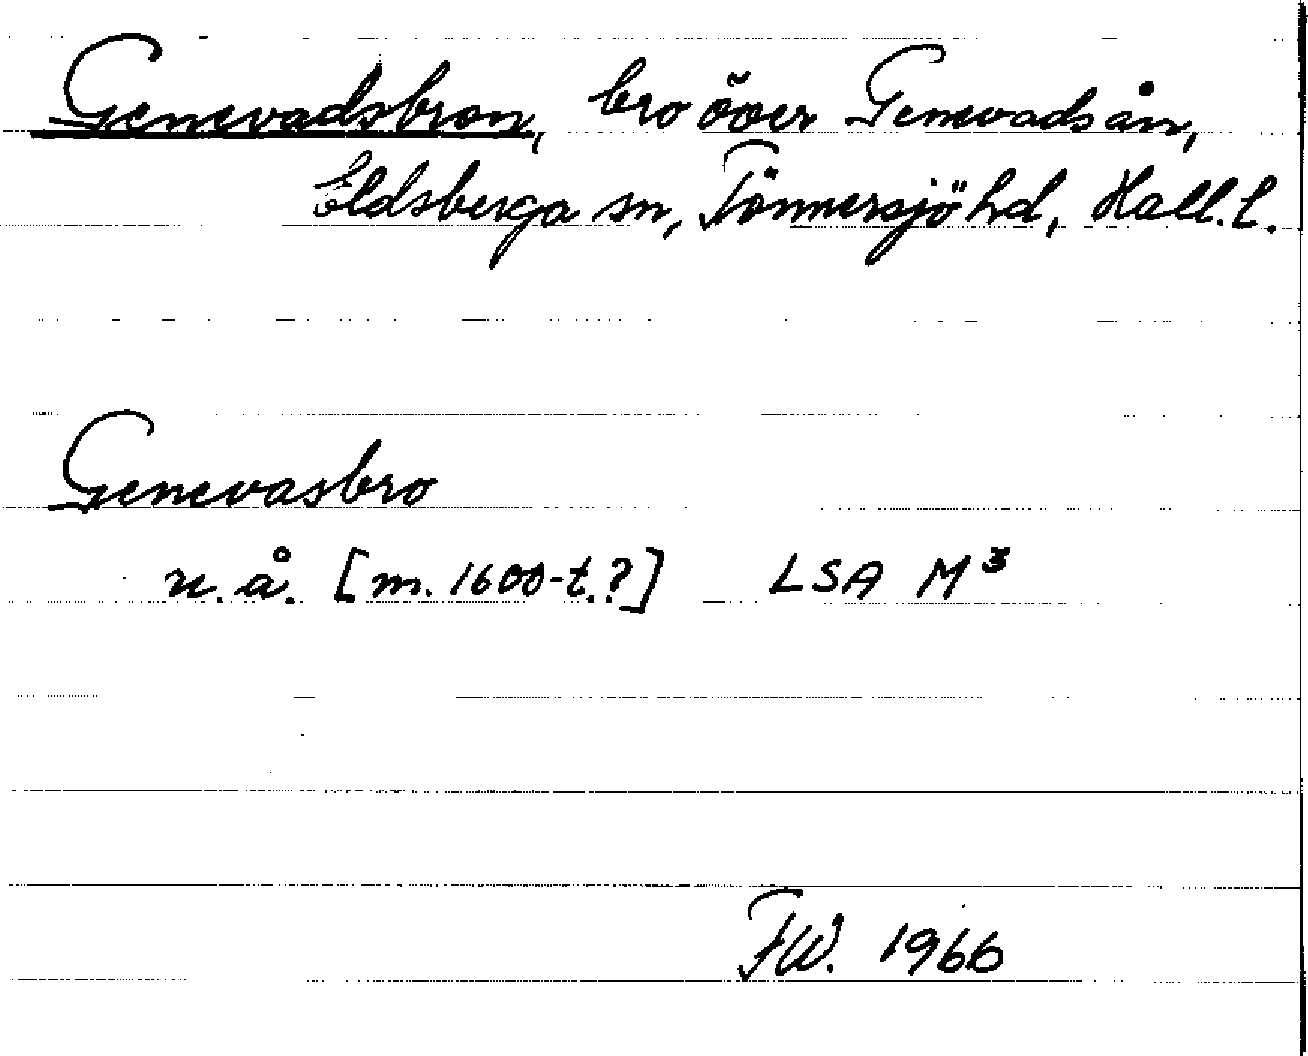 Genevadsbron, bro över Genevadsån,
Eldsberga sn, Tönnersjö hd, Hall. l.
Genevasbro
u. å. [m. 1600-t.?] LSA M³
FW. 1966